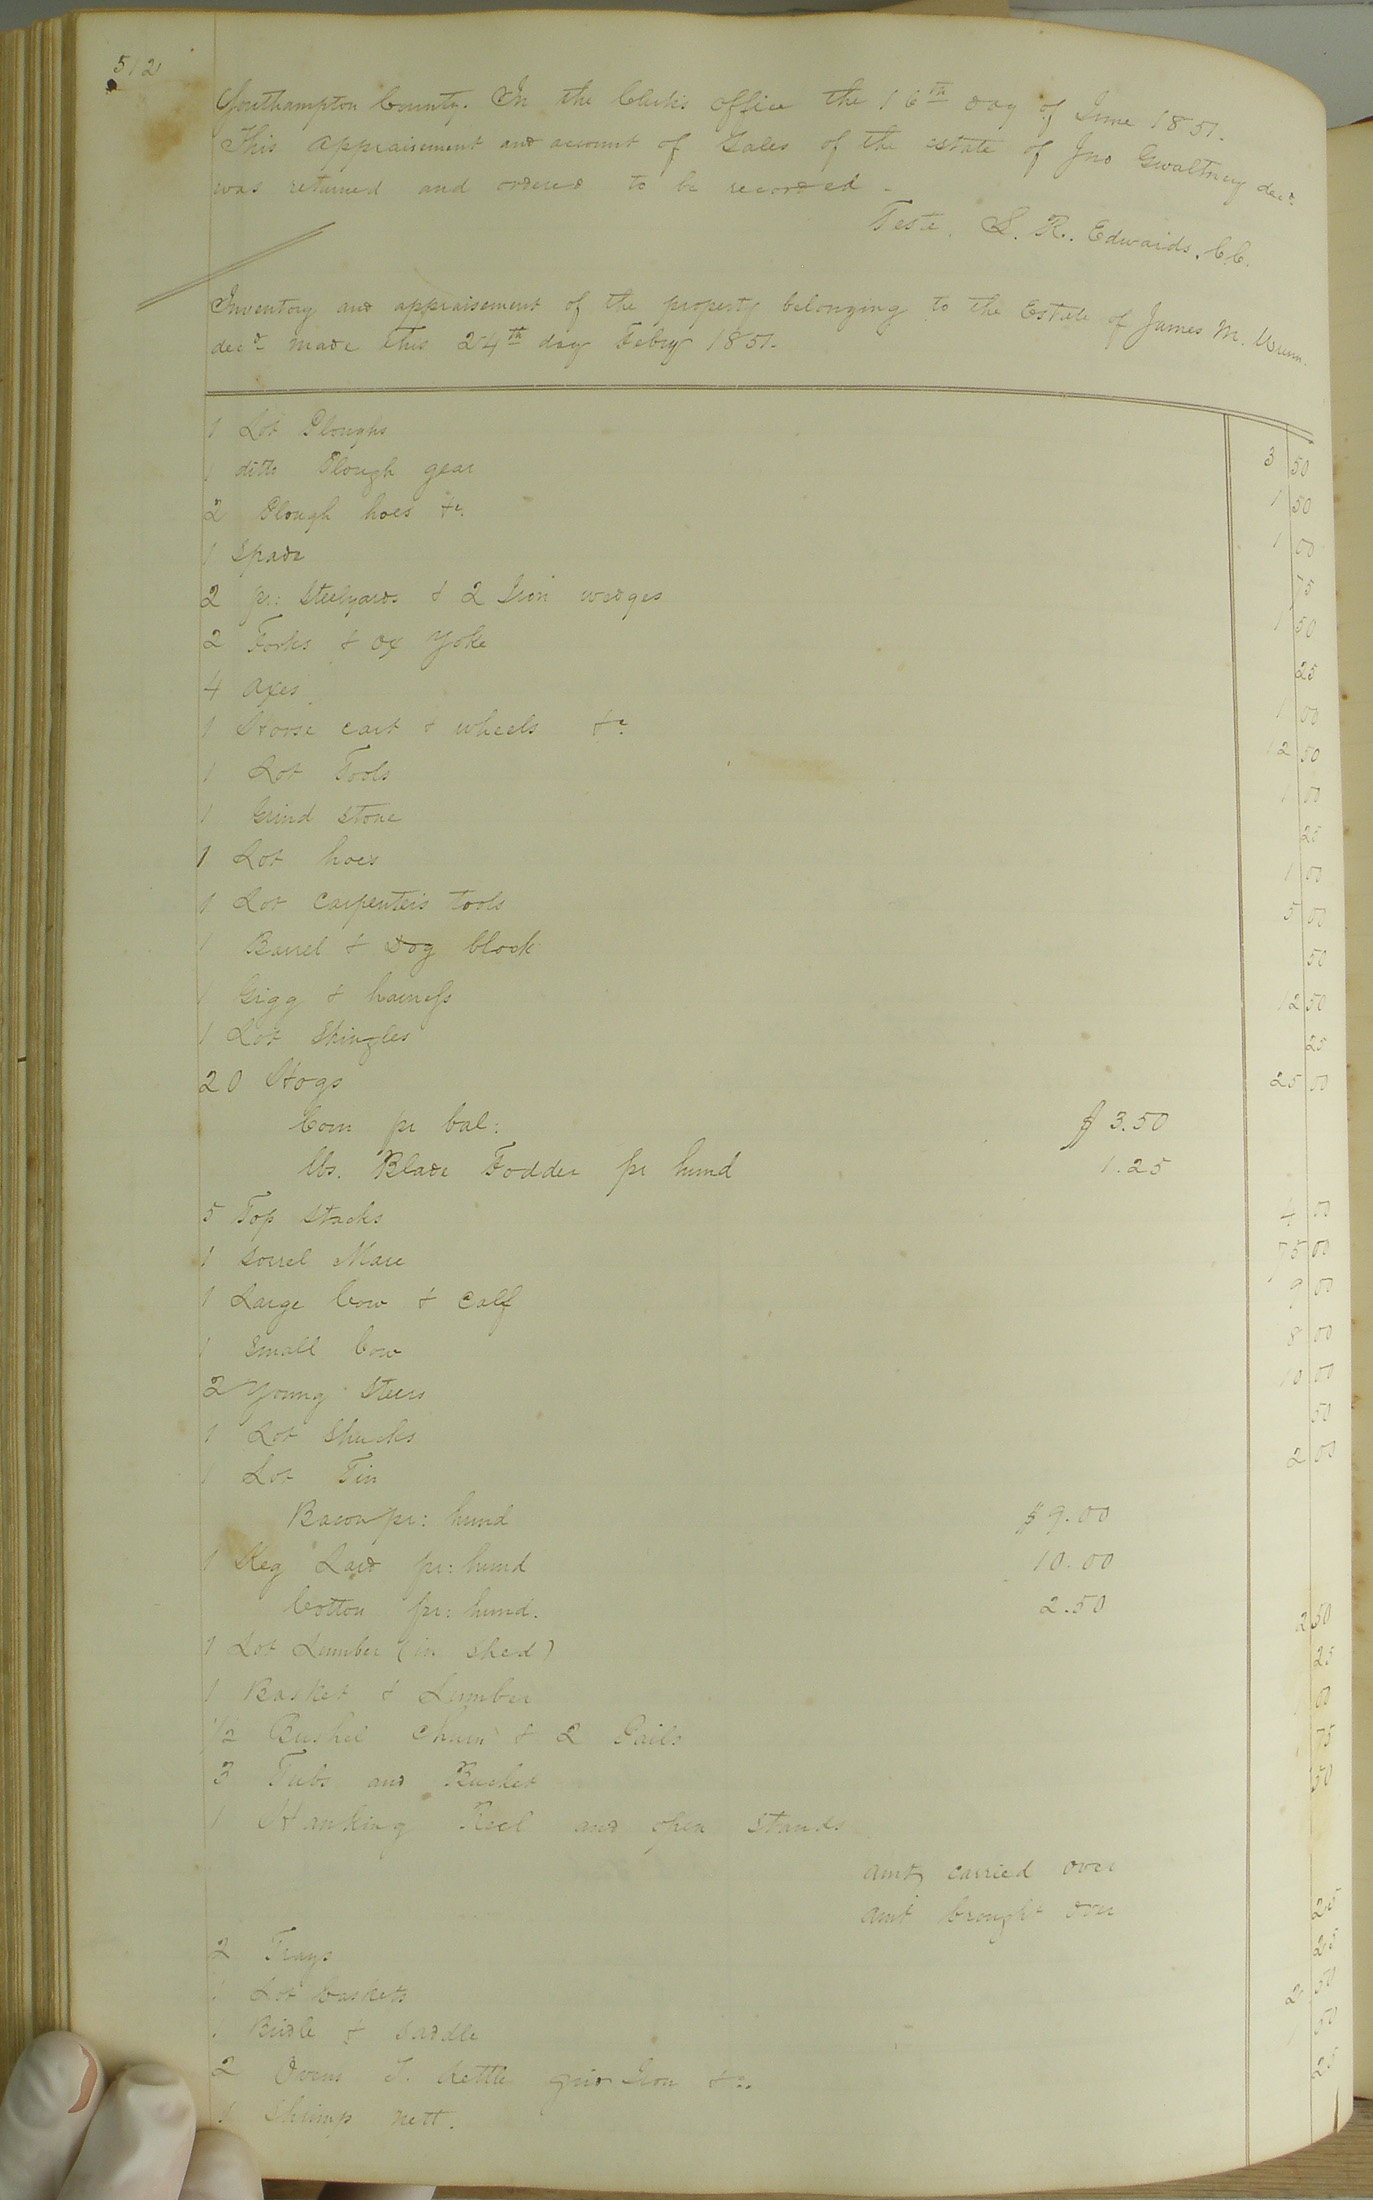 512
Southampton County. In the Clerk's office the 16th day of June 1851.
This appraisement and account of Sales of the estate of Jno Gwaltney decd.
was returned and ordered to be recorded.
Teste. L. R. Edwards. C.C.
Inventory and appraisement of the property belonging to the Estate of James M.
decd. made this 24th day Feby 1851.
1 Lot Ploughs 3 50
1 ditto Plough gear 1 50
2 Plough hoes &c. 1 00
1 Spade 75
2 pr: Steelyards & 2 Iron wedges 1 50
2 Forks & Ox Yoke 25
4 Axes 1 00
1 Horse cart & wheels &c. 12 50
1 Lot Tools 1 00
1 Grind stone 25
1 Lot hoes 1 00
1 Lot Carpenters tools 5 00
1 Barrel & Dog block 50
1 Gigg & harness 12 50
1 Lot Shingles 25
20 Hogs 25 00
Corn pr bal: $3.50
lbs. Blade Fodder pr hund 1.25
5 Top Stacks 4 00
1 Sorrel Mare 75 00
1 Large Cow & Calf 9 00
1 Small Cow 8 00
2 Young Steers 10 00
1 Lot Shucks 50
1 Lot Tin 2 00
Bacon pr: hund $9.00
1 Keg Lard pr: hund 10.00
Cotton pr: hund. 2.50
1 Lot Lumber (in Shed) 2 50
1 Basket & Lumber 25
1/2 Bushel Churn & 2 Pails 1 00
3 Tubs and Bucket 75
1 Hanking Reel and open Stands 50
amt carried over
amt brought over
2 Trays 25
1 Lot baskets 25
1 Bridle & Saddle 2 50
2 Ovens T. Kettle grid Iron &c. 1 50
1 Shrimp nett. 25